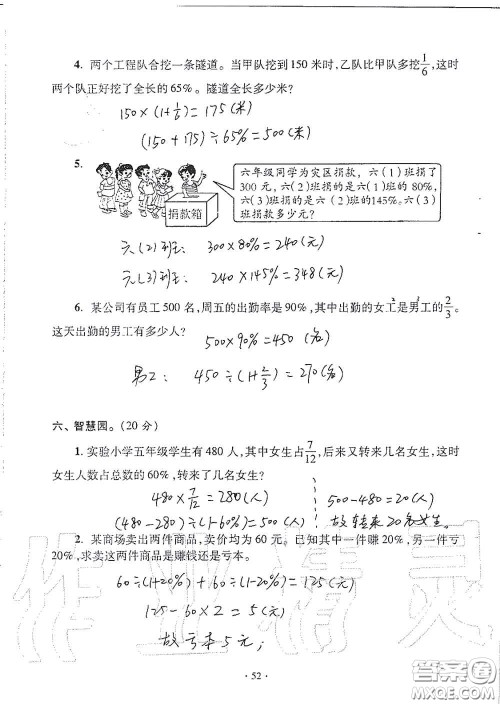 4. 两个工程队合挖一条隧道。当甲队挖到150米时,乙队比甲队多挖1/6,这时
两个队正好挖了全长的65%。隧道全长多少米?
150×(1+1/6)=175(米)
(150+175)÷65%=500(米)
5.
六年级同学为灾区捐款,六(1)班捐了
300元,六(2)班捐的是六(1)班的80%,
六(3)班捐的是六(2)班的145%。六(3)
班捐款多少元?
捐款箱
六(2)班: 300×80%=240(元)
六(3)班: 240×145%=348(元)
6. 某公司有员工500名,周五的出勤率是90%,其中出勤的女工是男工的2/3。
这天出勤的男工有多少人?
500×90%=450(名)
男工: 450÷(1+2/3)=270(名)
六、智慧园。(20分)
1. 实验小学五年级学生有480人,其中女生占7/12,后来又转来几名女生,这时
女生人数占总数的60%,转来了几名女生?
480×7/12=280(人)
(480-280)÷(1-60%)=500(人)
500-480=20(人)
故转来20名女生。
2. 某商场卖出两件商品,卖价均为60元。已知其中一件赚20%,另一件亏
20%,求卖这两件商品是赚钱还是亏本。
60÷(1+20%)+60÷(1-20%)=125(元)
125-60×2=5(元)
故亏本5元;
作业精灵
·52·
答案圈
MXQE.COM